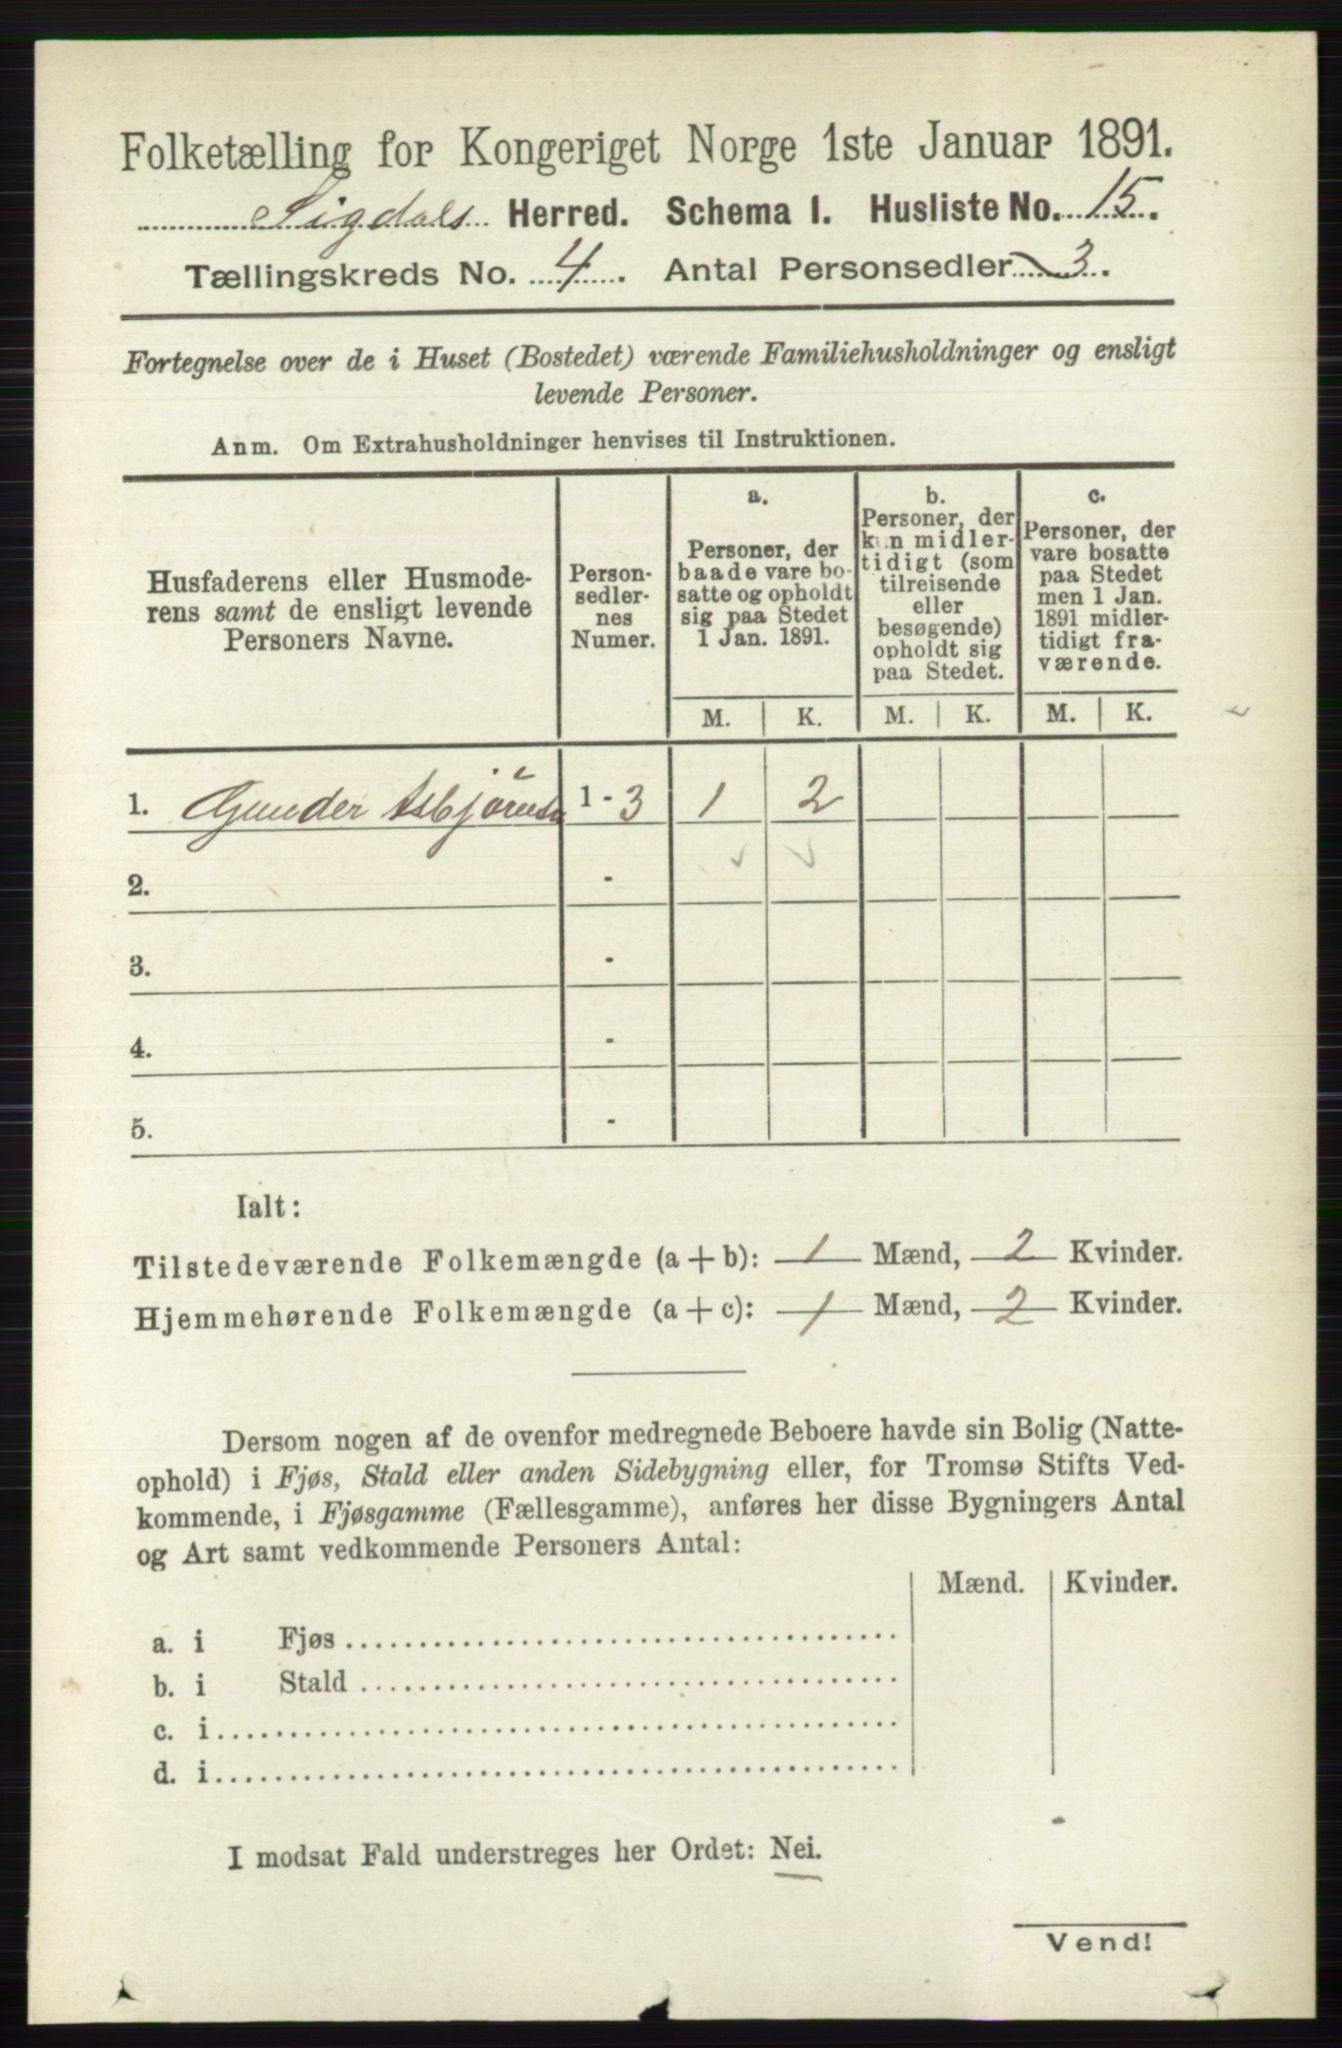 Folketælling for Kongeriget Norge 1ste Januar 1891.
Sigdals Herred. Schema I. Husliste No. 15.
Tællingskreds No. 4. Antal Personsedler 3.
Fortegnelse over de i Huset (Bostedet) værende Familiehusholdninger og ensligt
levende Personer.
Anm. Om Extrahusholdninger henvises til Instruktionen.
Husfaderens eller Husmode-
rens samt de ensligt levende
Personers Navne.
Person-
sedler-
nes
Numer.
a.
Personer, der
baade vare bo-
satte og opholdt
sig paa Stedet
1 Jan. 1891.
b.
Personer, der
kun midler-
tidigt (som
tilreisende
eller
besøgende)
opholdt sig
paa Stedet.
c.
Personer, der
vare bosatte
paa Stedet
men 1 Jan.
1891 midler-
tidigt fra-
værende.
M. K. M. K. M. K.
1. Gunder Asbjörnsen 1 - 3 1 2
2. -
3. -
4. -
5. -
Ialt:
Tilstedeværende Folkemængde (a + b): 1 Mænd, 2 Kvinder.
Hjemmehørende Folkemængde (a + c): 1 Mænd, 2 Kvinder.
Dersom nogen af de ovenfor medregnede Beboere havde sin Bolig (Natte-
ophold) i Fjøs, Stald eller anden Sidebygning eller, for Tromsø Stifts Ved-
kommende, i Fjøsgamme (Fællesgamme), anføres her disse Bygningers Antal
og Art samt vedkommende Personers Antal:
Mænd. Kvinder.
a. i Fjøs
b. i Stald
c. i
d. i
I modsat Fald understreges her Ordet: Nei.
Vend!